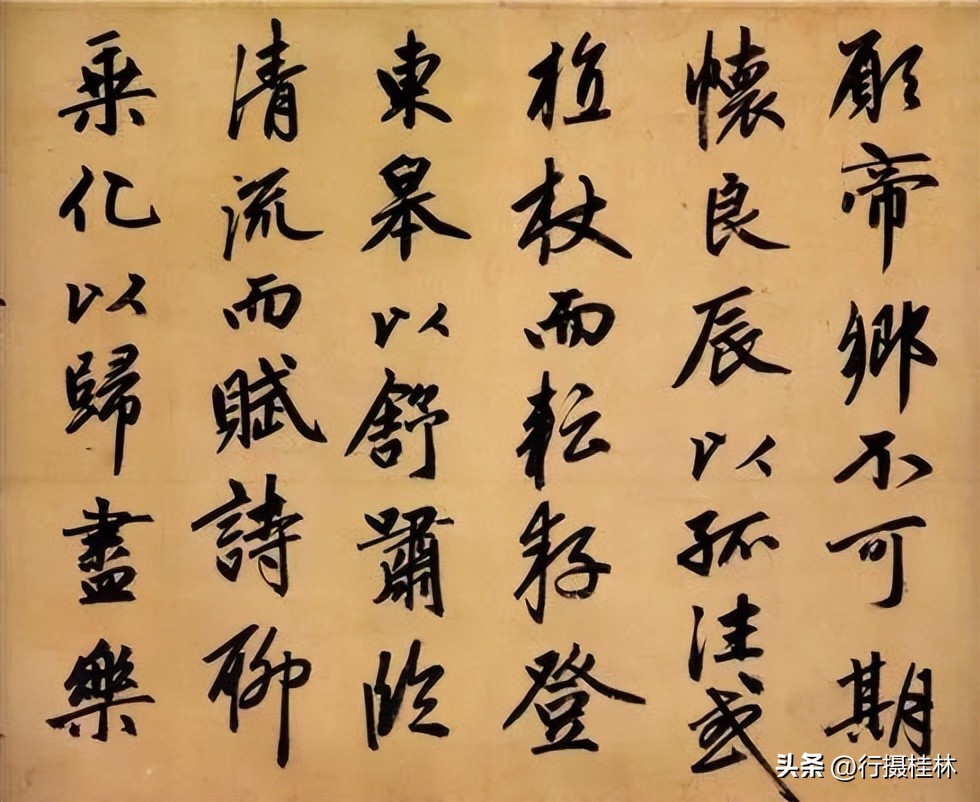 願帝鄉不可期
懷良辰以孤往或
植杖而耘耔登
東皋以舒嘯臨
清流而賦詩聊
乘化以歸盡樂
头条 @行摄桂林